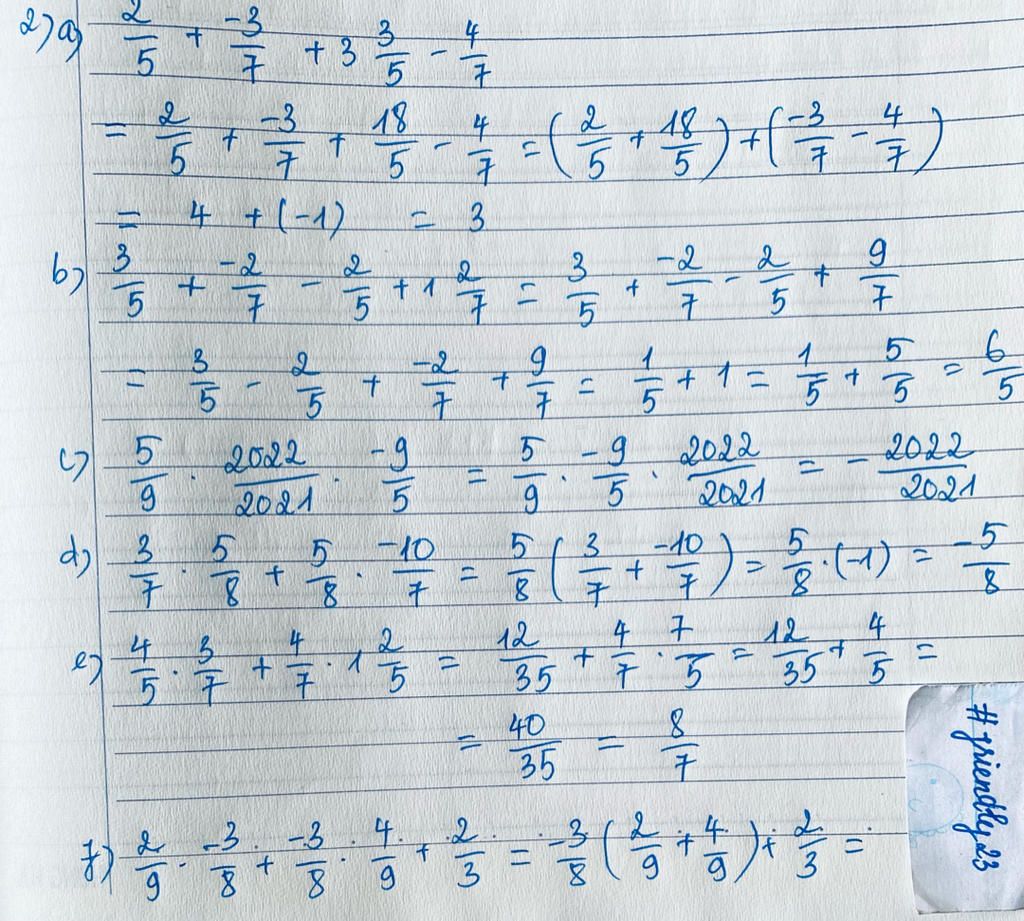 2) a) 2/5 + -3/7 + 3 3/5 - 4/7
= 2/5 + -3/7 + 18/5 - 4/7 = (2/5 + 18/5) + (-3/7 - 4/7)
= 4 + (-1) = 3
b) 3/5 + -2/7 - 2/5 + 1 2/7 = 3/5 + -2/7 - 2/5 + 9/7
= 3/5 - 2/5 + -2/7 + 9/7 = 1/5 + 1 = 1/5 + 5/5 = 6/5
c) 5/9 . 2022/2021 . -9/5 = 5/9 . -9/5 . 2022/2021 = - 2022/2021
d) 3/7 . 5/8 + 5/8 . -10/7 = 5/8 (3/7 + -10/7) = 5/8 . (-1) = -5/8
e) 4/5 . 3/7 + 4/7 . 1 2/5 = 12/35 + 4/7 . 7/5 = 12/35 + 4/5 =
= 40/35 = 8/7
f) 2/9 . -3/8 + -3/8 . 4/9 + 2/3 = -3/8 (2/9 + 4/9) + 2/3 =
#friendly23